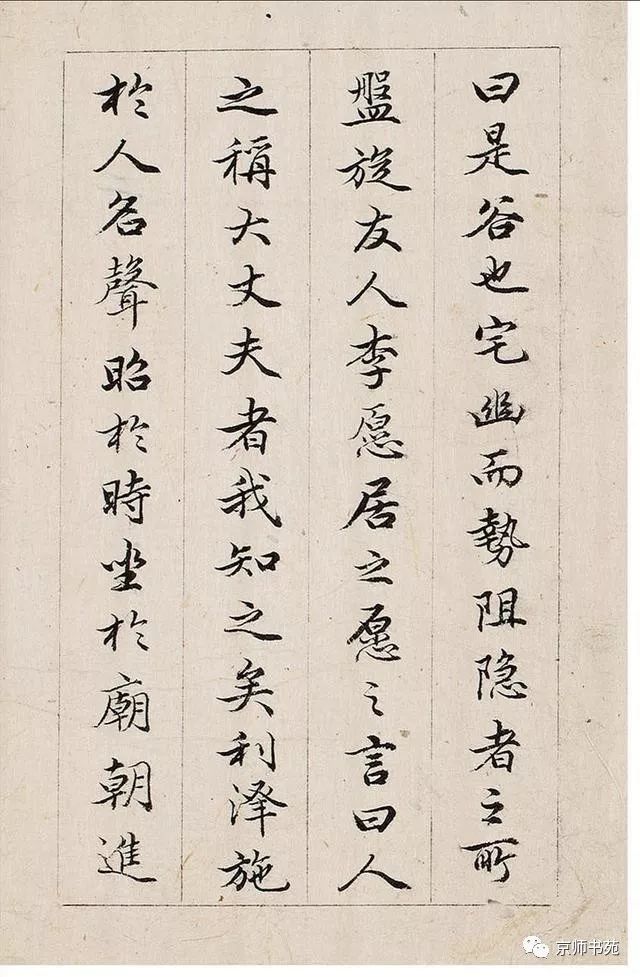 曰是谷也宅幽而勢阻隐者之所
盤旋友人李愿居之愿之言曰人
之稱大丈夫者我知之矣利泽施
於人名聲昭於時坐於廟朝進
京师书苑